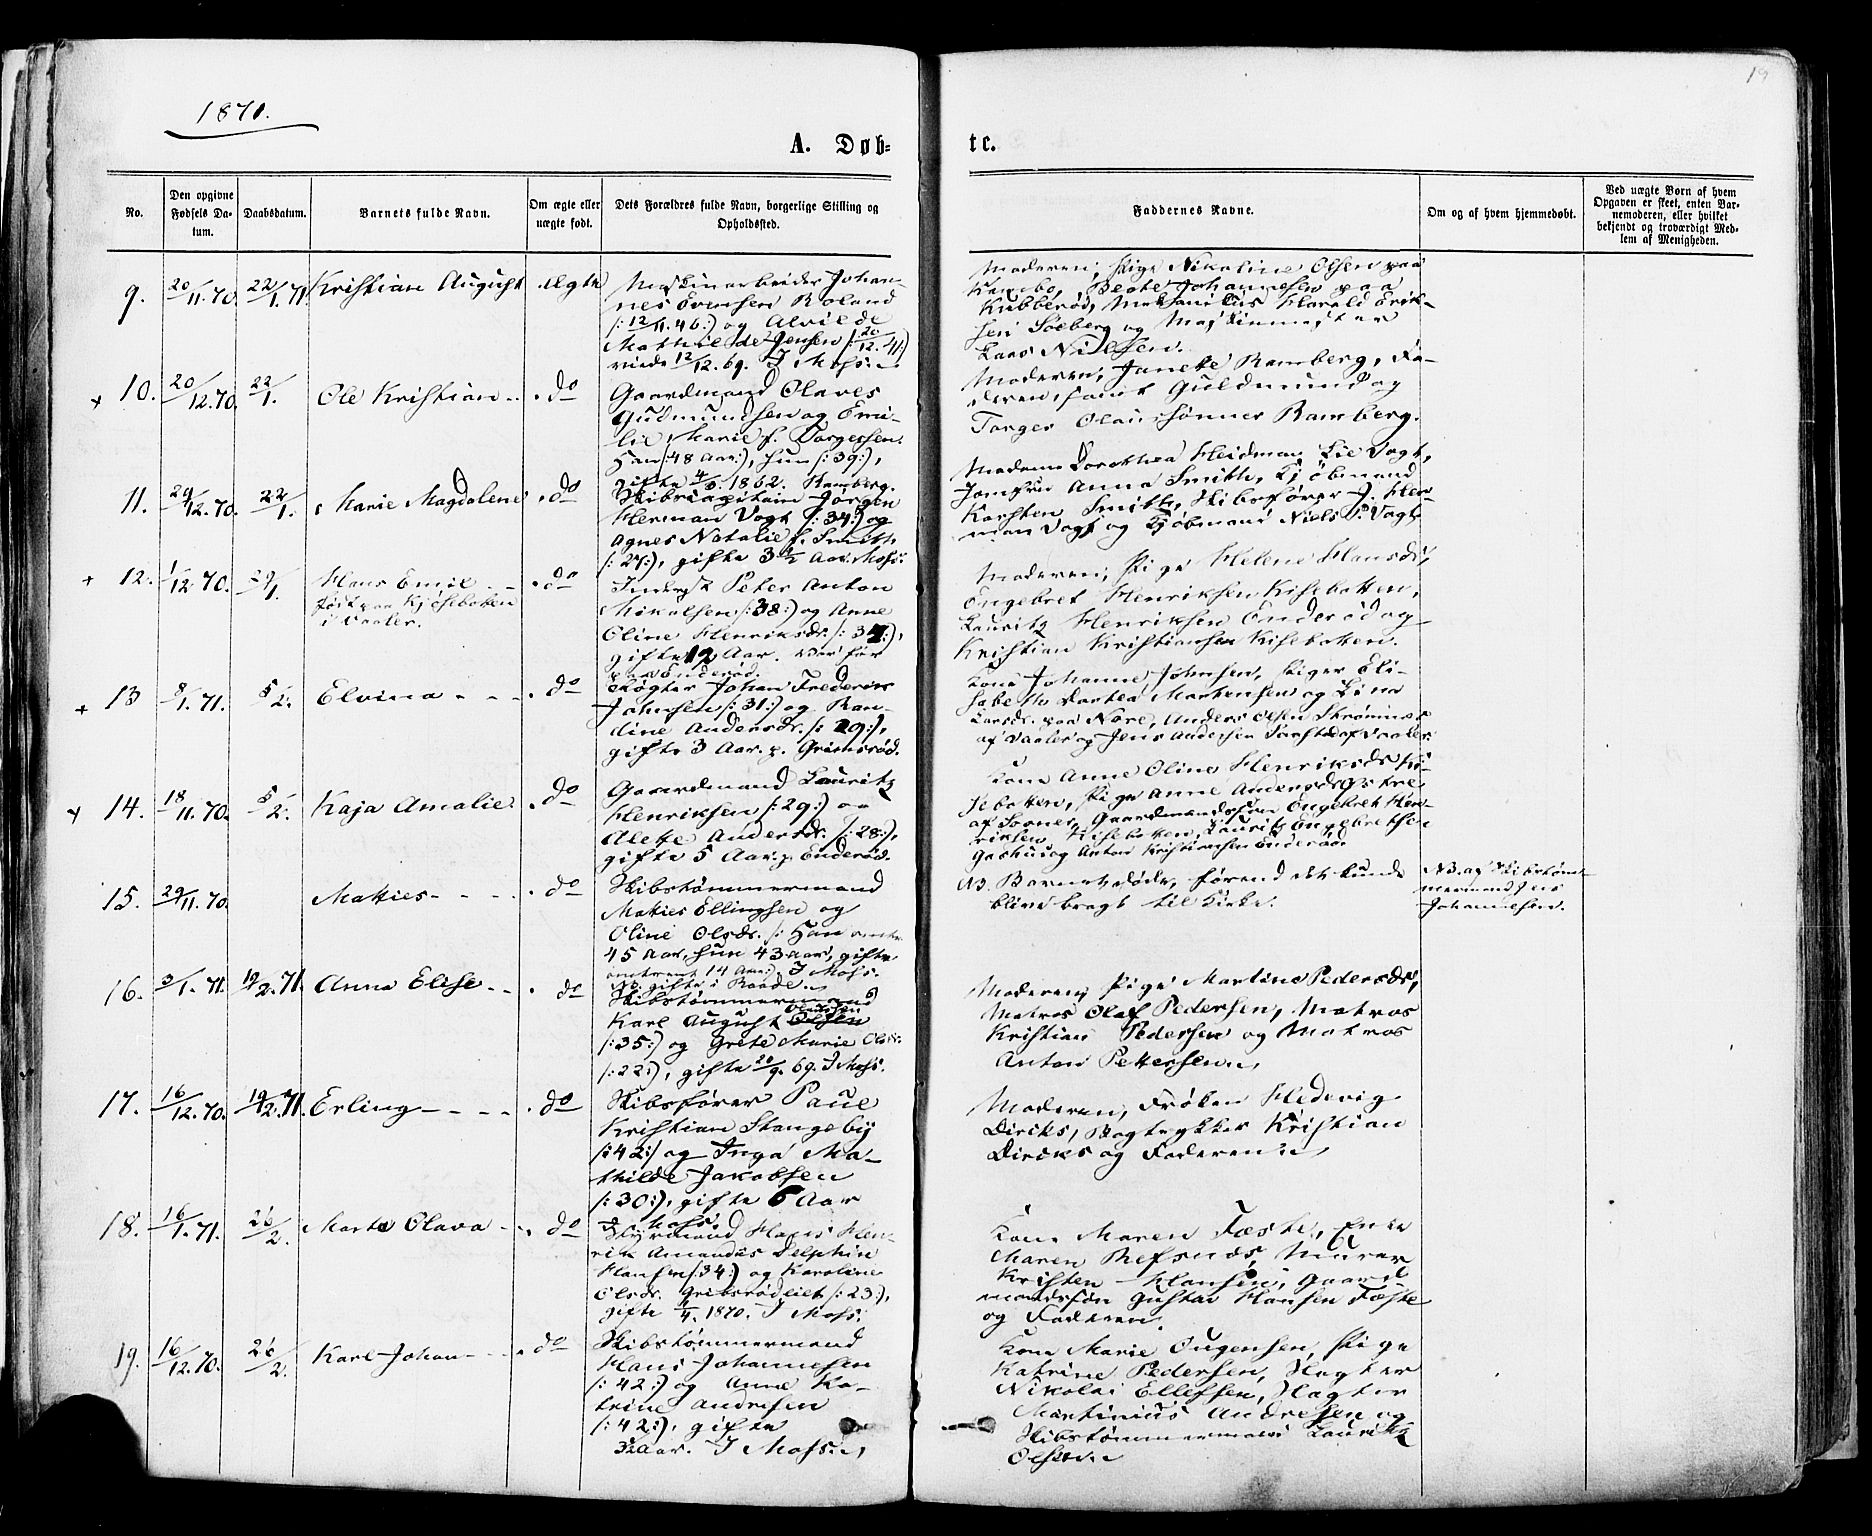 1871.
19
A. Døb-
te.
No.
Den opgivne Fødsels Da-
tum.
Daabsdatum.
Barnets fulde Navn.
Om ægte eller
uægte født.
Dets Forældres fulde Navn, borgerlige Stilling og
Opholdssted.
Faddernes Navne.
Om og af hvem hjemmedøbt.
Ved uægte Børn af hvem
Opgaven er skeet, enten Bar-
nemoderen, eller hvilket
bekjendt og troværdigt Med-
lem af Menigheden.
9. 20/11.70. 22/1.71. Kristian August ægte
Maskinarbeider Johan-
nes Evensen Roland
/:12/11.46:/ og Alvilde
Mathilde Jensen /:20/12.41:/
viede 12/12.69. I Moss.
Moderen, Pige Nikoline Olsen paa
Kambo, Beate Johannesen paa
Kubberød, Mekanikus Harald Erik-
sen Solberg og Maskinmester
Lars Nielsen.
+ 10. 20/12.70. 22/1. Ole Kristian do
Gaardmand Olaves
Gudmundsen og Emi-
lie Marie f. Torgersen.
Han /:48 Aar:/, hun /:39:/,
gifte 1862. Ramberg.
Moderen, Janette Ramberg, Fa-
deren, samt Guldmund og
Torger Olaussønner Ramberg.
11. 29/12.70. 22/1. Marie Magdalene do
Skibscapitain Jørgen
Herman Vogt /:34:/ og
Agnes Natalie f. Smith
/:27:/, gifte 3 1/2 Aar. Moss.
Moderen Dorothea Heidman Lie Vogt,
Jomfru Anna Smith, Kjøbmand
Karsten Smith, Skibsfører J. Her-
man Vogt og Kjøbmand Niels P. Vogt
+ 12. 1/12.70. 29/1. Hans Emil do
født paa Kjosebotten
i Vaaler.
Inderst Peter Anton
Mikalsen /:38:/ og Anne
Oline Henriksdr. /:34:/,
gifte 12 Aar. var før
paa Enderød.
Moderen, Pige Helene Hansdr,
Engebret Henriksen Kisebotten,
Lauritz Henriksen Enderød og
Kristian Kristiansen Kisebotten.
+ 13 8/1.71. 5/2. Elvina do
Røgter Johan Frederik
Johnsen /:31:/ og Ran-
dine Andersdr. /:29:/,
gifte 3 Aar. p. Grimsrød.
Kone Johanne Johnsen, Piger Eli-
sabeth Dortea Martensen og Line
Larsdr. paa Nore, Anders Olsen Strømnes
af Vaaler og Jens Andersen af Vaaler.
+ 14. 18/11.70. 5/2. Kaja Amalie do
Gaardmand Lauritz
Henriksen /:29:/ og
Alette Andersdr. /:28:/,
gifte 5 Aar. p. Enderød.
Kone Anne Oline Henriksdr Ki-
sebotten, Pige Anne Andersdr Østre
af Soner, Gaardmandssøn Engebret Hen-
riksen Kisebotten, Lauritz Engebretsen
og Anton Kristiansen Enderød.
15. 29/11.70. Matties do
Skibstømmermand
Matties Ellingsen og
Oline Olsdr. /: Han omtr.
45 Aar, hun 43 Aar, gifte
omtrent 14 Aar:/. I Moss.
NB. gifte i Raade.
NB. Barnet døde, førend det kunde
blive bragt til Kirke.
NB. af Skibstøm-
mermand Jens
Johannesen.
16. 3/1.71. 19/2.71. Anna Elise do
Skibstømmermand
Karl August Olsen
/:35:/ og Grete Marie Olsdr.
/:22:/, gifte 20/9.69. I Moss.
Moderen, Pige Martine Pedersdr,
Matros Olaf Pedersen, Matros
Kristian Pedersen og Matros
Anton Pettersen.
17. 16/12.70. 19/2.71. Erling do
Skibsfører Paul
Kristian Stangeby
/:42:/ og Inga Ma-
thilde Jakobsen
/:30:/, gifte 6 Aar
I Moss.
Moderen, Frøken Hedevig
Diriks, Bogtrykker Kristian
Diriks og Faderen.
18. 16/1.71. 26/2. Marte Olava do
Styrmand Hans Hen-
rik Amandus Delphin
Hansen /:34:/ og Karoline
Olsdr. Gribsrødeiet /:23:/,
gifte 4/4. 1870. I Moss.
Kone Maren Fæste, Enke
Maren Refsnæs, Murer
Kristen Hansen, Gaard-
mandssøn Gustav Hansen Fæste
og Faderen.
19. 16/12.70. 26/2. Karl Johan do
Skibstømmermand
Hans Johannesen
/:42:/ og Anne Ka-
trine Andresen
/:42:/, gifte
Aar. I Moss.
Kone Marie Eugensen, Pige
Katrine Pedersen, Slagter
Nikolai Ellefsen, Slagter
Martinius Andresen og
Skibstømmermand Lauritz
Olsen.